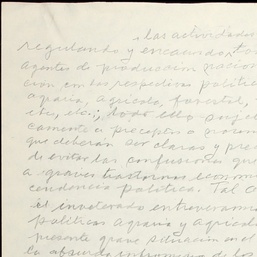 las actividades
regulando y encauzando
agentes de producción nacion
con en los respectivos polític
agraria, agrícola, forestal,
etc, etc.; todo ello sujet
camente a preceptos o norm
que deberán ser claras y prec
de evitar las confusiones que
a graves trastornos econom
cendencia política. Tal
el inveterado entreveramie
políticas agraria y agrícol
presente grave situación en el
lo absurdo